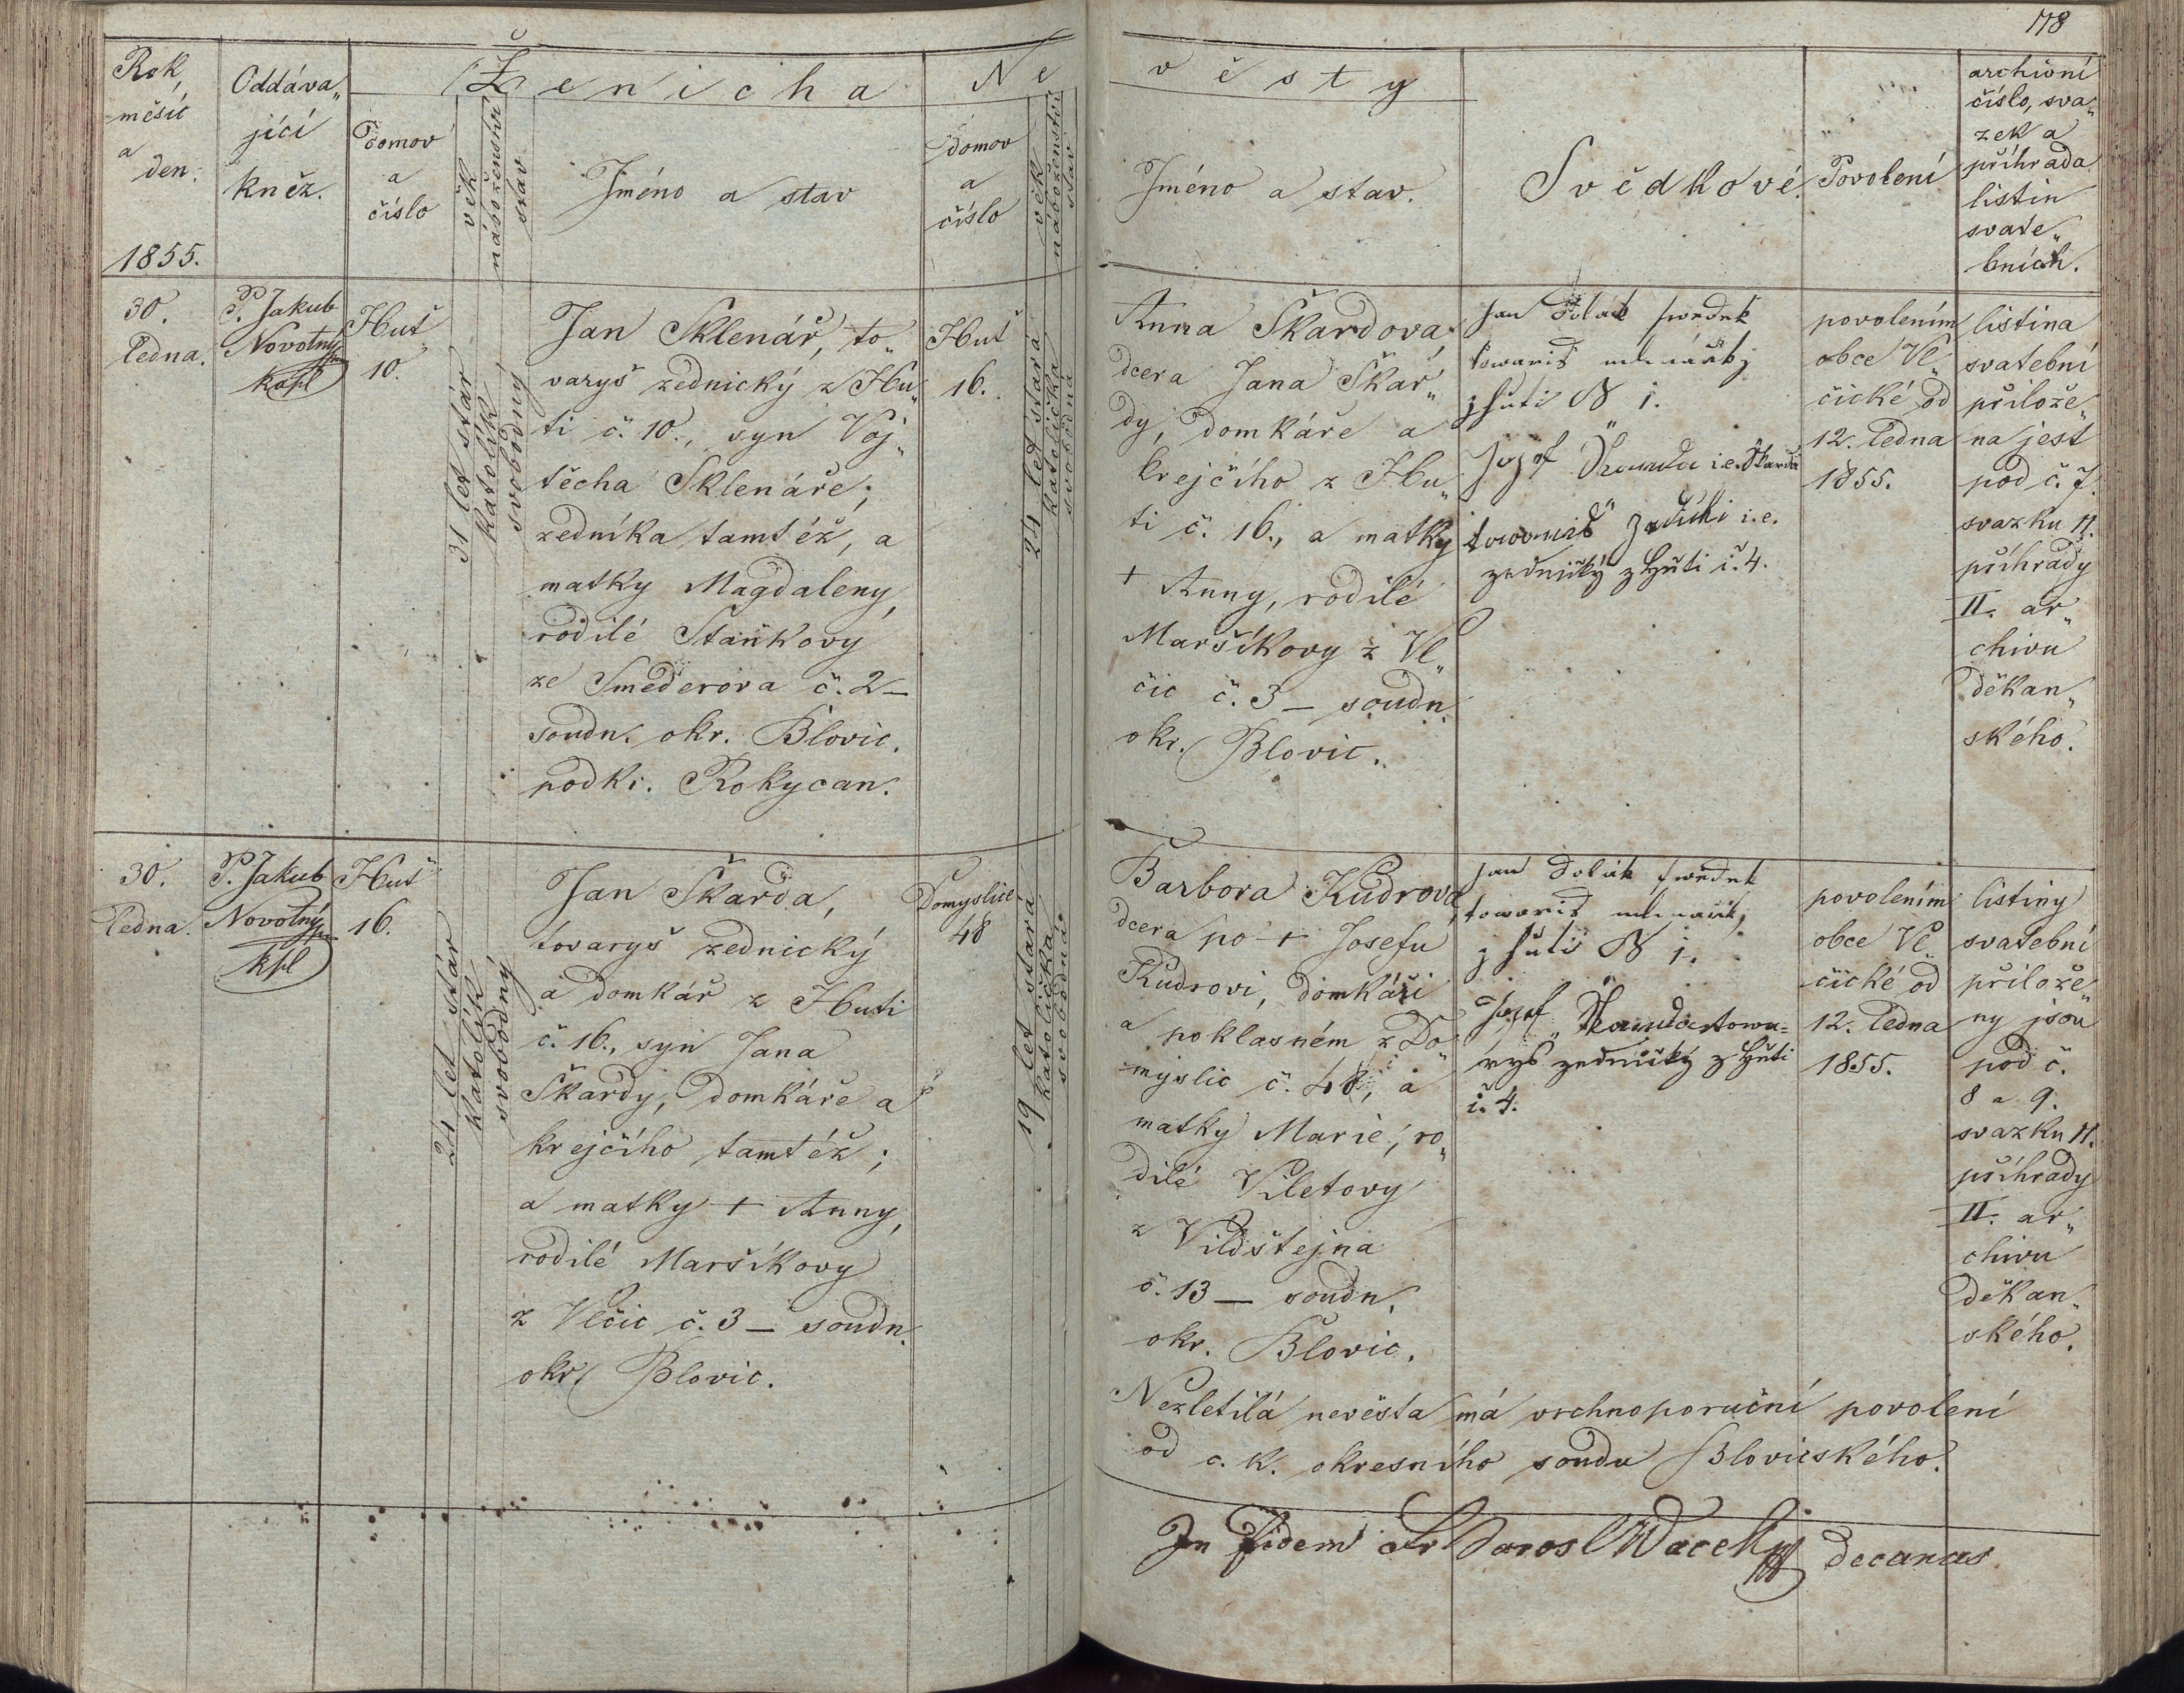 178
Rok,
měsíc
a
den.
1855.
Oddáva„
jící
kněz.
Ženicha
Domov
a
číslo
věk
náboženství
stav
Jméno a stav
Ne
domov
a
číslo
věk
náboženství
stav
věsty
Jméno a stav.
Svědkové.
Povolení
archivní
číslo, sva„
zek a
příhrada
listin
svate„
bních.
30.
Ledna.
P. Jakub
Novotný
kapl
Huť
10.
31 let stár
katolík
svobodný
Jan Sklenář, to„
varyš zednický z Hu„
ti č. 10., syn Voj„
těcha Sklenáře,
zedníka tamtéž, a
matky Magdaleny,
rodilé Staňkovy
ze Smederova č. 2 –
soudn. okr. Blovic.
podkr. Rokycan.
Huť
16.
24 let stará
katolička
svobodná
Anna Škardova,
dcera Jana Škar„
dy, domkáře a
krejčího z Hu„
ti č. 16., a matky
+ Anny, rodilé
Maršíkovy z Vl„
čic č. 3 – soudn.
okr. Blovic.
Jan Polak swedek
towariš
z huti N 1.
Jozef Skarda i.e. Škarda
i.e.
zednický z Huti č. 4.
povolením
obce Vl„
čické od
12. Ledna
1855.
listina
svatební
přilože„
na jest
pod č. 7.
svazku 11.
příhrady
II. ar„
chivu
děkan„
ského.
30.
Ledna.
P. Jakub
Novotný
kpl
Huť
16.
24 let stár
katolík
svobodný
Jan Škarda,
tovaryš zednický
a domkář z Huti
č. 16., syn Jana
Škardy, domkáře a
krejčího tamtéž;
a matky + Anny,
rodilé Maršíkovy
z Vlčic č. 3 – soudn.
okr. Blovic.
Domyslice
48
19 let stará
katolička
svobodná
Barbora Kudrova,
dcera po + Josefu
Kudrovi, domkáři
a poklasném z Do„
myslic č. 48, a
matky Marie, ro„
dilé Viletovy
z Vildštejna
č. 13 – soudn.
okr. Blovic.
Jan Polak swedek
towariš
z huti N 1.
Jozef Skarda towa=
ryš zednický z Huti
č. 4.
povolením
obce Vl„
čické od
12. Ledna
1855.
listiny
svatební
přilože„
ny jsou
pod č.
8 a 9.
svazku 11.
příhrady
II. ar„
chivu
děkan„
ského.
Nezletilá nevěsta má vrchnoporuční povolení
od c. k. okresního soudu Blovicského.
In fidem decanus